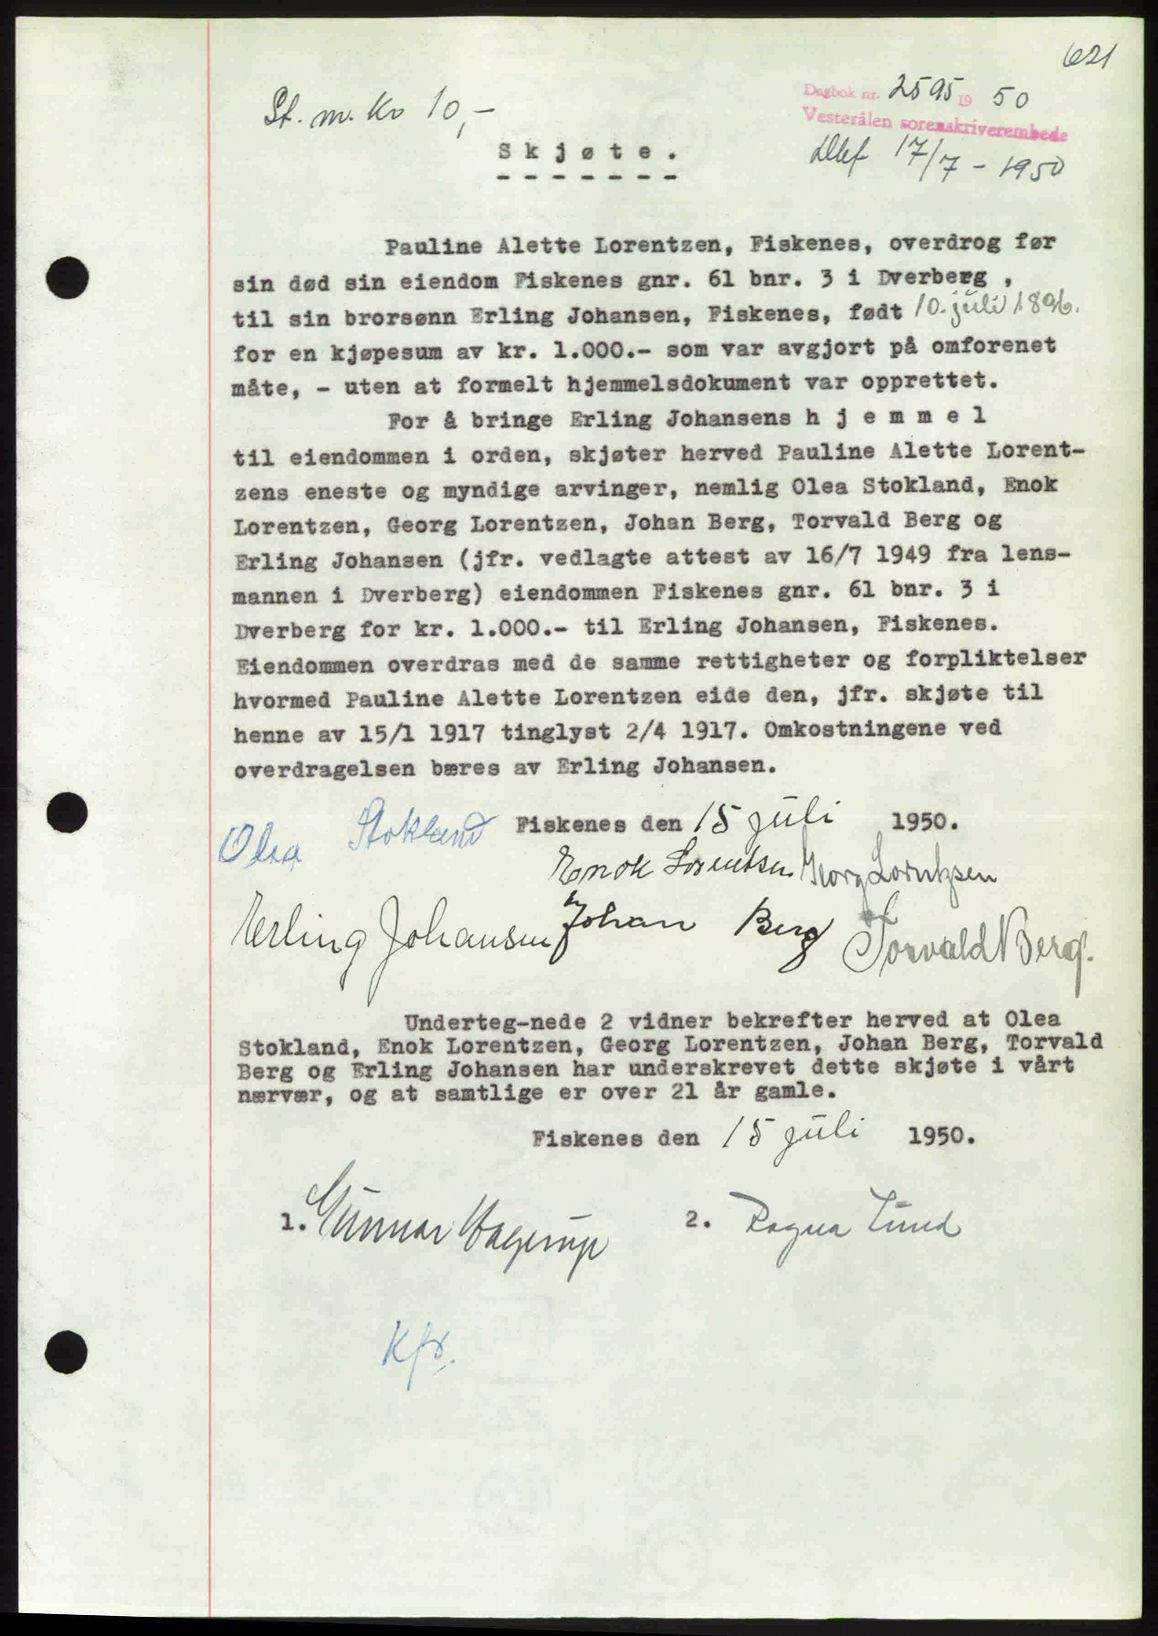 621
St. m. kr 10,-
Dagbok nr. 2595 19 50
Vesterålen sorenskriverembede
17/7 - 1950
Skjøte.
- - - - - - -
Pauline Alette Lorentzen, Fiskenes, overdrog før
sin død sin eiendom Fiskenes gnr. 61 bnr. 3 i Dverberg ,
til sin brorsønn Erling Johansen, Fiskenes, født 10. juli 1896.
for en kjøpesum av kr. 1.000.- som var avgjort på omforenet
måte, - uten at formelt hjemmelsdokument var opprettet.
For å bringe Erling Johansens h j e m m e l
til eiendommen i orden, skjøter herved Pauline Alette Lorent-
zens eneste og myndige arvinger, nemlig Olea Stokland, Enok
Lorentzen, Georg Lorentzen, Johan Berg, Torvald Berg og
Erling Johansen (jfr. vedlagte attest av 16/7 1949 fra lens-
mannen i Dverberg) eiendommen Fiskenes gnr. 61 bnr. 3 i
Dverberg for kr. 1.000.- til Erling Johansen, Fiskenes.
Eiendommen overdras med de samme rettigheter og forpliktelser
hvormed Pauline Alette Lorentzen eide den, jfr. skjøte til
henne av 15/1 1917 tinglyst 2/4 1917. Omkostningene ved
overdragelsen bæres av Erling Johansen.
Fiskenes den 15 juli 1950.
Olea Stokland
Enok Lorentsen Georg Lorntzsen
Erling Johansen Johan Berg Torvald Berg.
Underteg-nede 2 vidner bekrefter herved at Olea
Stokland, Enok Lorentzen, Georg Lorentzen, Johan Berg, Torvald
Berg og Erling Johansen har underskrevet dette skjøte i vårt
nærvær, og at samtlige er over 21 år gamle.
Fiskenes den 15 juli 1950.
1. Gunnar Hagerup 2. Ragna Lund
Kfr.